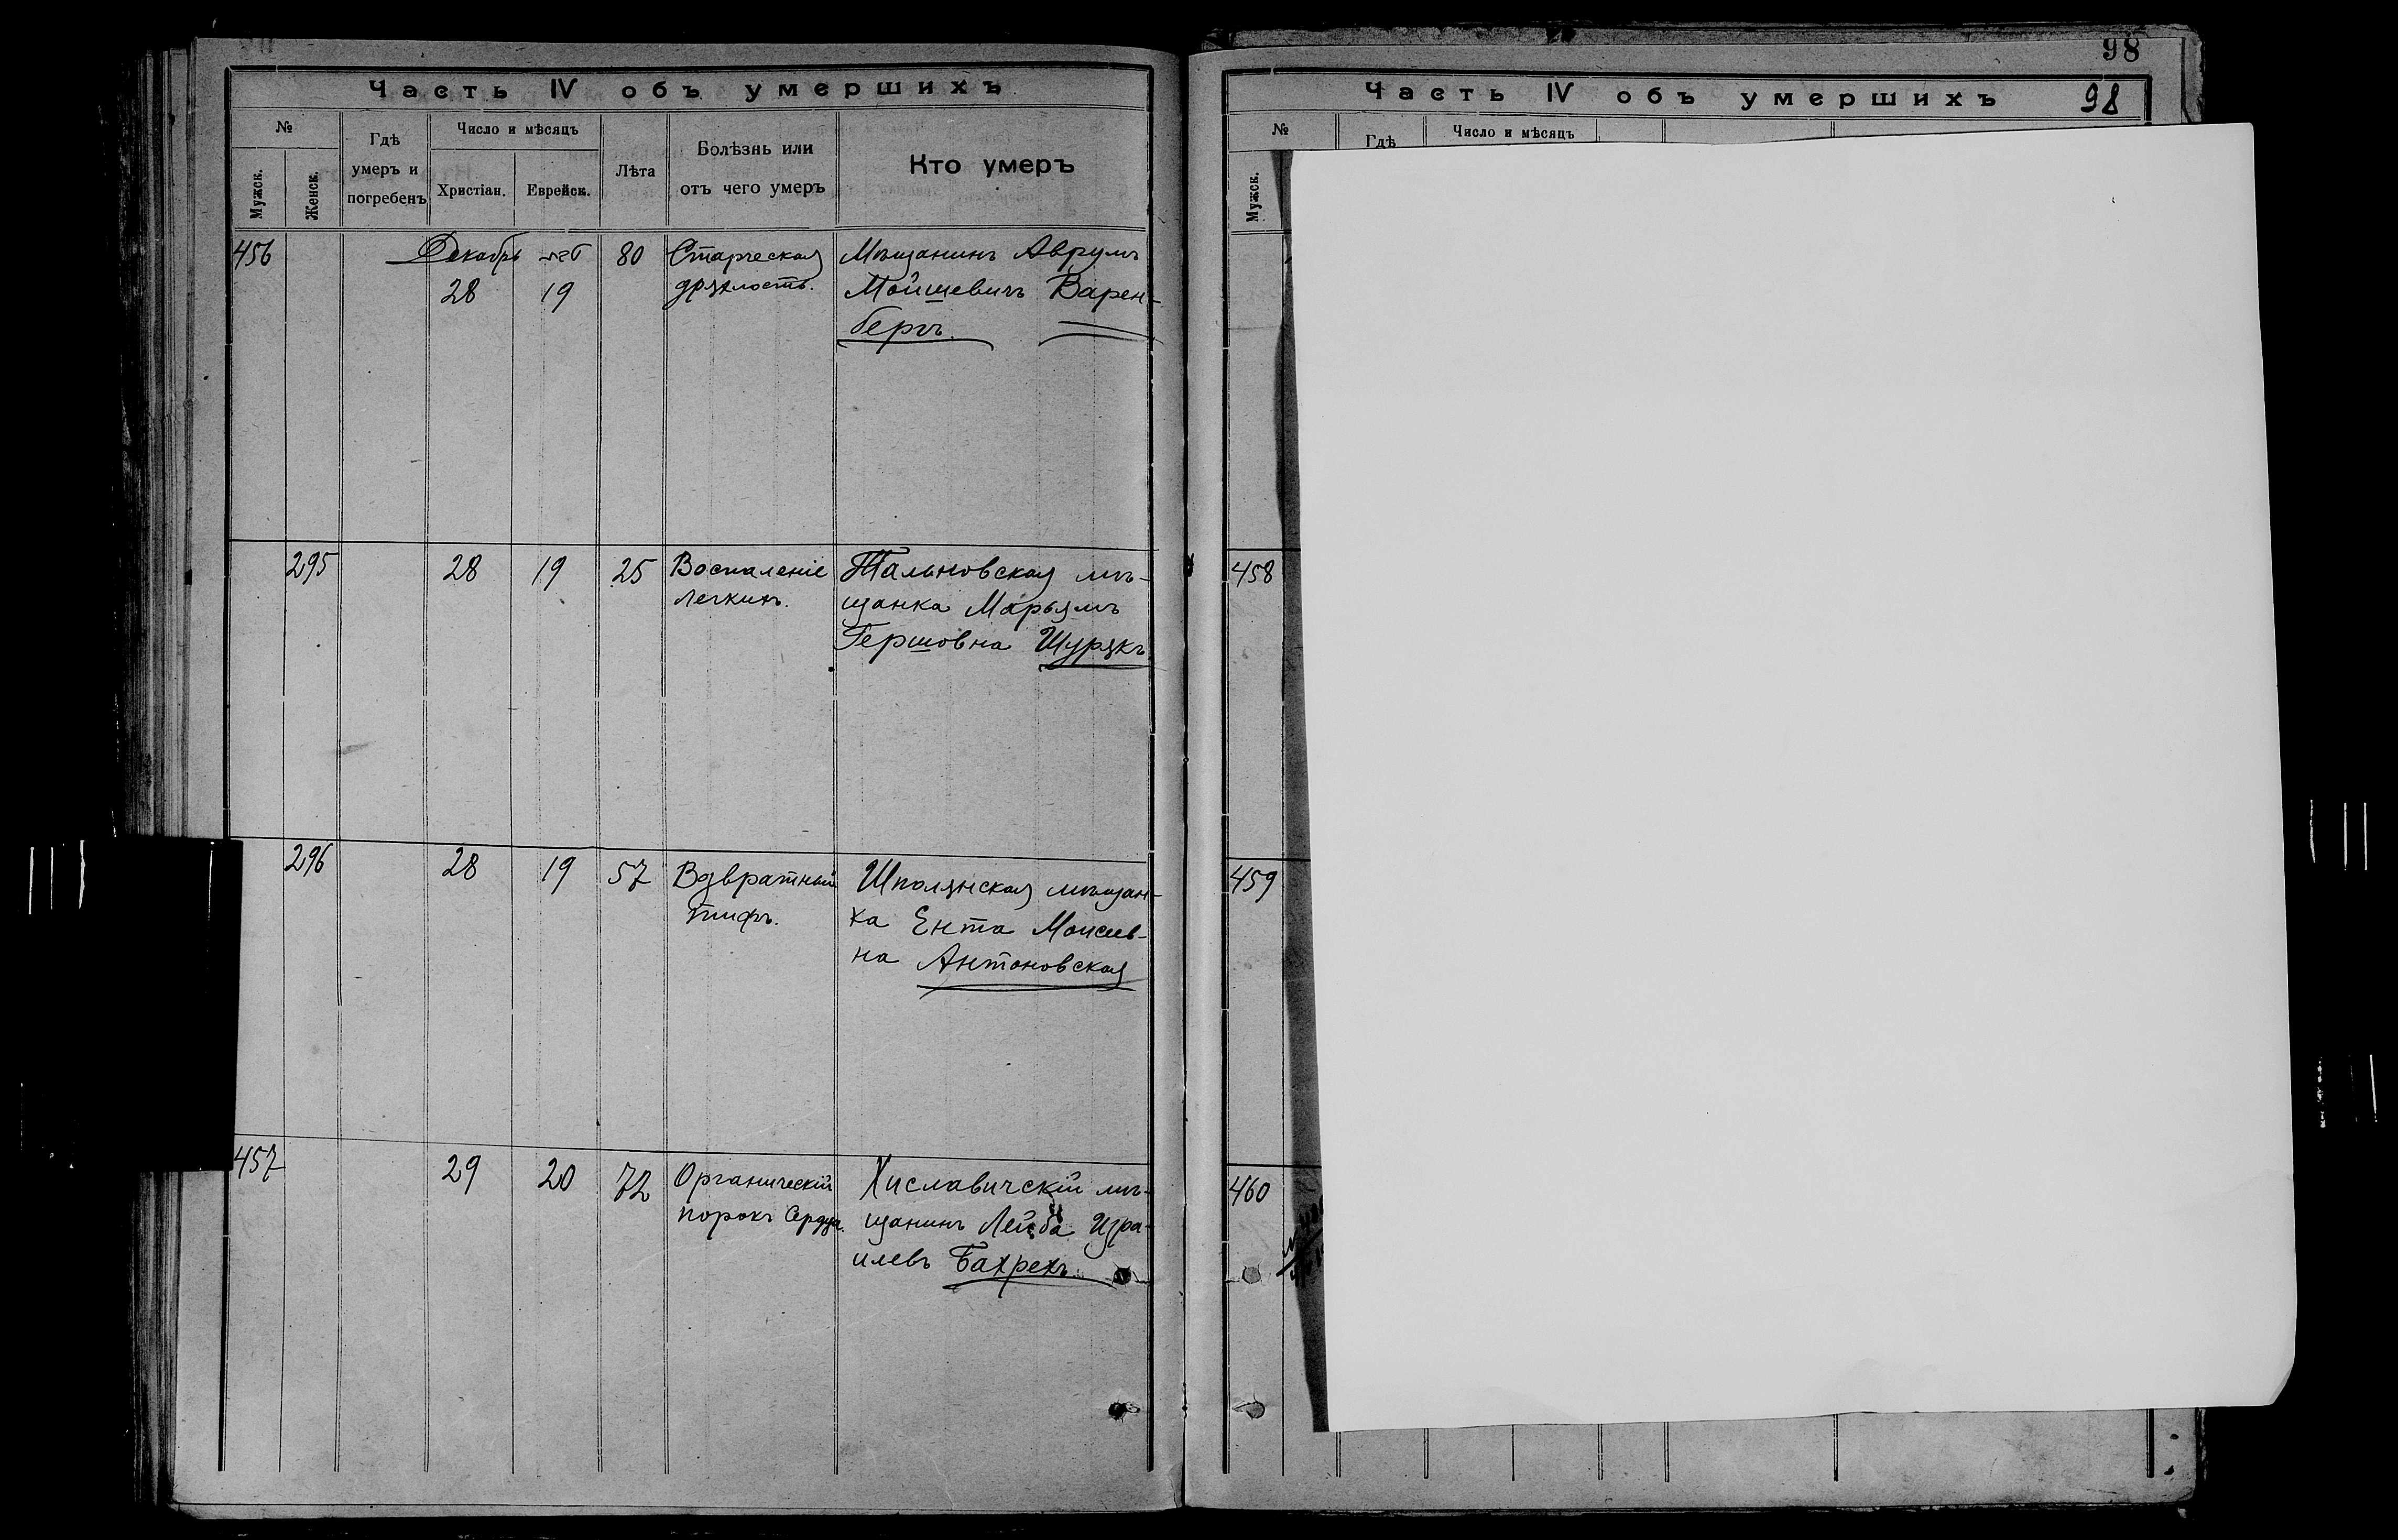 Часть IV объ умершихъ
№
Мужск.
Женск.
Гдѣ
умеръ и
погребенъ
Число и мѣсяцъ
Христіан.
Еврейск.
Лѣта
Болѣзнь или
отъ чего умеръ
Кто умеръ
456 Декабрь 80 Старческая Мѣщанинъ Аврумъ
28 19 дряхлость. Мойшевичъ Варен-
бергъ.
295 28 19 25 Воспаленіе Тальновская мѣ-
легкихъ. щанка Марьямъ
Гершовна Шурякъ
296 28 19 57 Взвратный Шполянская мѣщан-
тифъ. ка Ента Моисеев-
на Антоновская
457 29 20 72 Органическій Хиславичскій мѣ-
порокъ сердца. щанинъ Лейба Изра-
илевъ Бахрехъ.
98
Часть IV объ умершихъ 98
№
Мужск.
Гдѣ
Число и мѣсяцъ
458
459
460